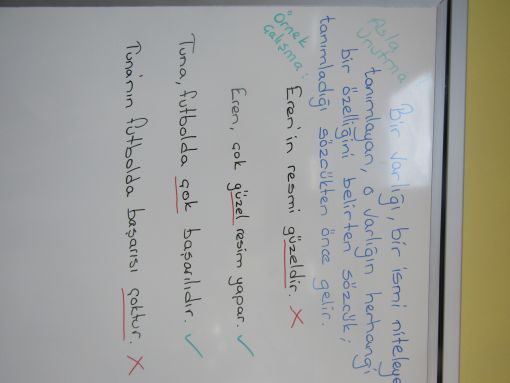 Asla
Unutma
Bir varlığı, bir ismi niteleye
tanımlayan, o varlığın herhangi
bir özelliğini belirten sözcük;
tanımladığı sözcükten önce gelir.
Örnek
Çalışma:
Eren'in resmi güzeldir. X
Eren, çok güzel resim yapar. ✓
Tuna, futbolda çok başarılıdır. ✓
Tuna'nın futbolda başarısı çoktur. X